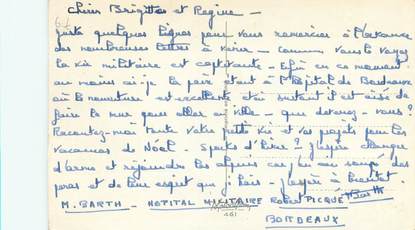 Chères Brigitte et Régine -
juste quelques lignes pour vous remercier à l'avance
des nombreuses lettres à venir - comme vous le voyez
la vie militaire est captivante - Enfin en ce moment
au moins ai-je la paix étant à l'Hôpital de Bordeaux
où la nourriture est excellente et où surtout il est aisé de
faire le mur pour aller en ville - que devenez-vous ?
Racontez-moi toute votre petite vie et vos projets pour les
vacances de Noël - Sports d'hiver ? J'espère changer
d'arme et rejoindre les alpins car j'en ai soupé des
paras et de leur esprit que je hais - J'espère à bientôt
M. BARTH - HOPITAL MILITAIRE ROBERT PICQUÉ
BORDEAUX